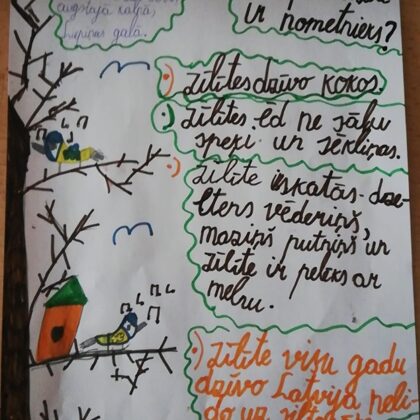 augstajā kalnā,
Liepiņas galā.
ir nometnieks?
Zīlītes dzīvo kokos.
Zīlītes ēd ne sāļu
speķi un sēkliņas.
Zīlīte iskatās - dze-
ltens vēderiņš,
maziņš putniņš un
zīlīte ir peleks ar
melnu.
Zīlīte visu gadu
dzīvo Latvijā neli-
do uz